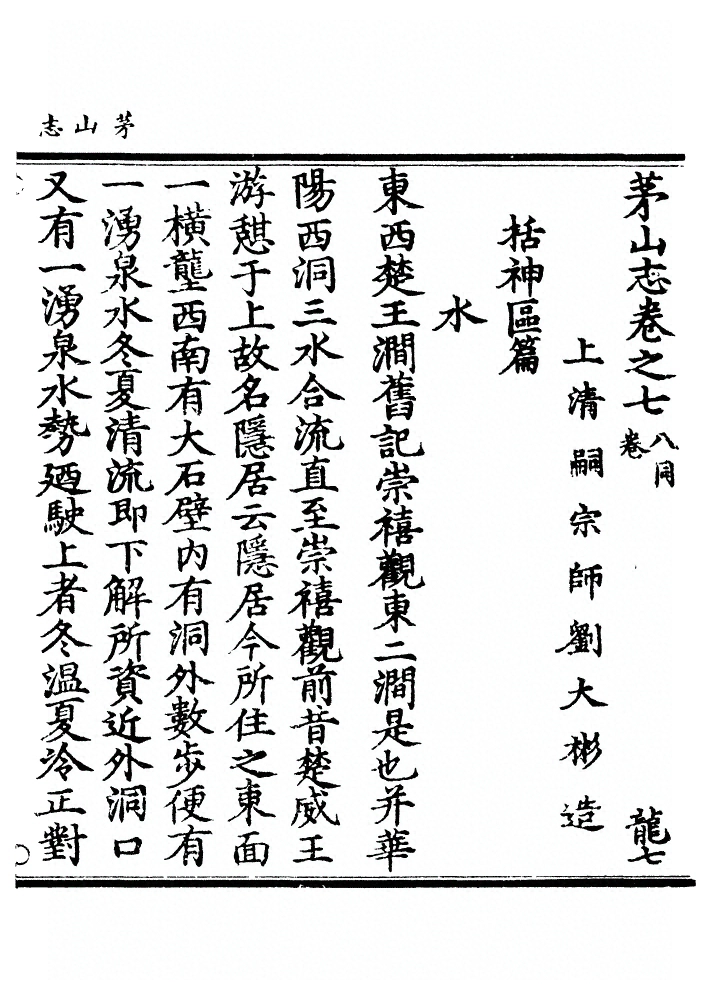 茅山志
茅山志卷之七 八同卷 龍七
上清嗣宗師劉大彬造
括神區篇
水
東西楚王澗舊記崇禧觀東二澗是也并華
陽西洞三水合流直至崇禧觀前昔楚威王
游憇于上故名隱居云隱居今所住之東面
一橫壟西南有大石壁內有洞外數步便有
一湧泉水冬夏清流即下解所資近外洞口
又有一湧泉水勢廼駛上者冬溫夏冷正對